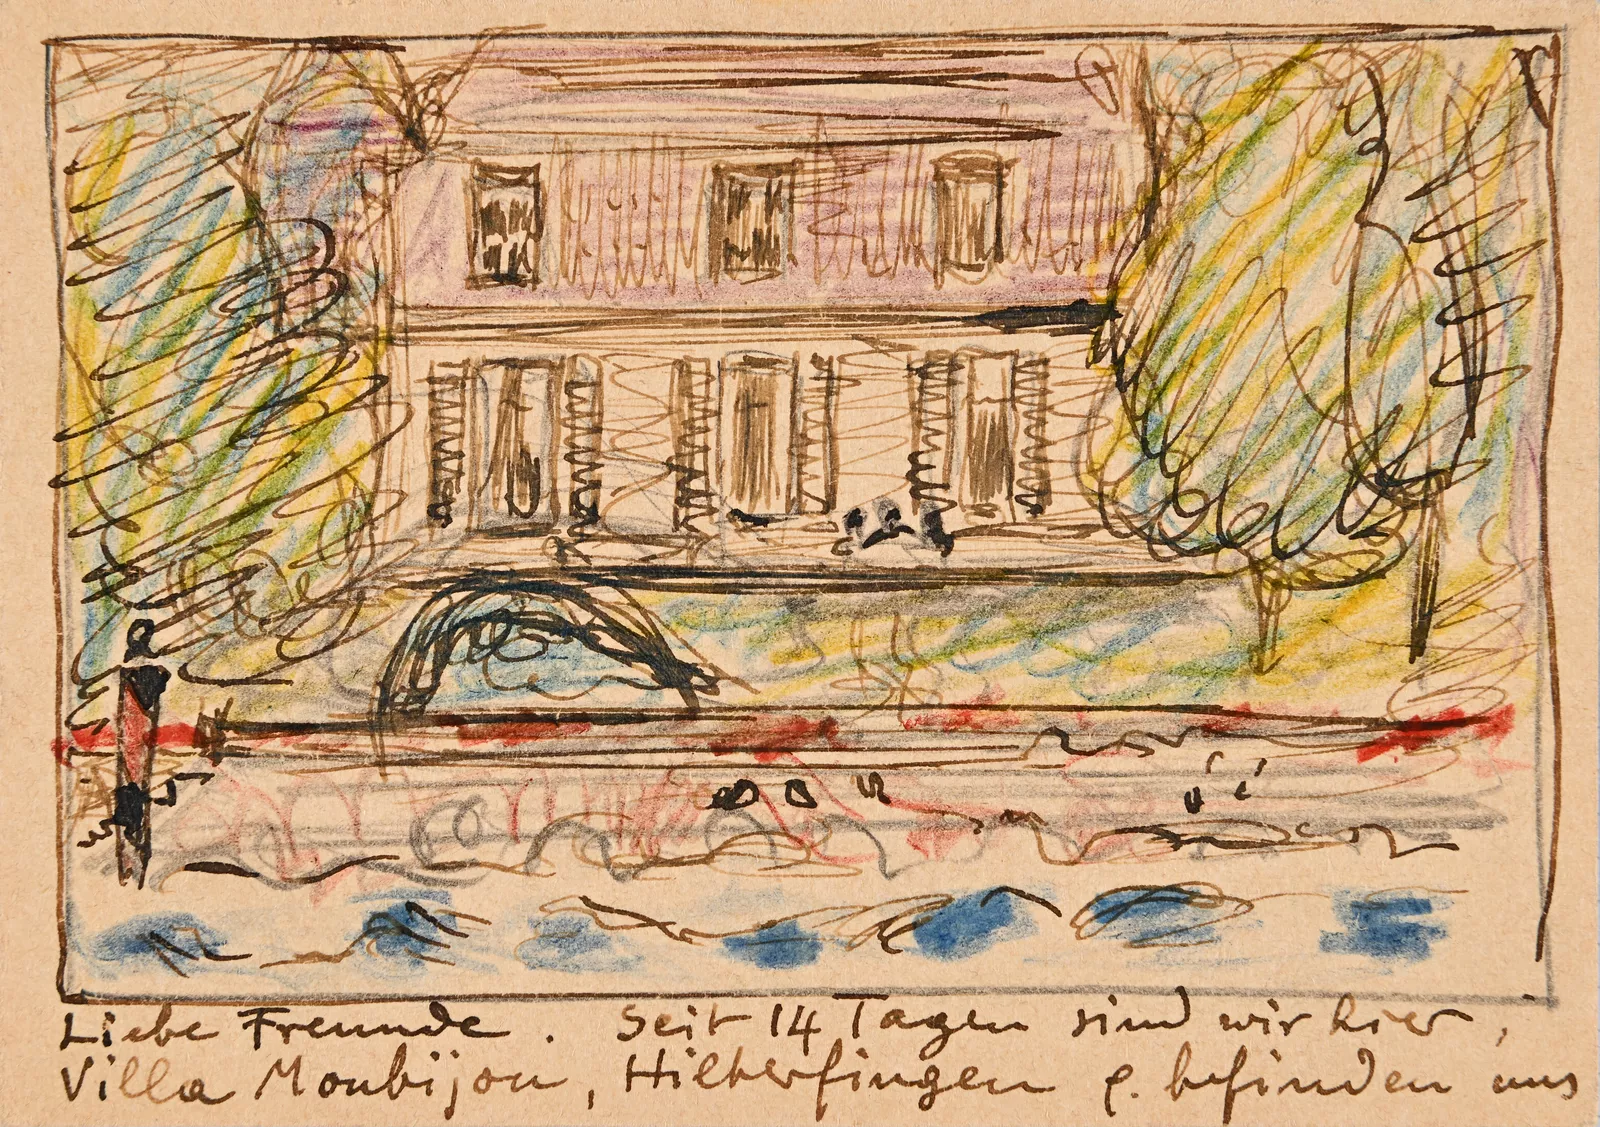 Liebe Freunde. Seit 14 Tagen sind wir hier,
Villa Monbijou, Hilterfingen &. befinden uns